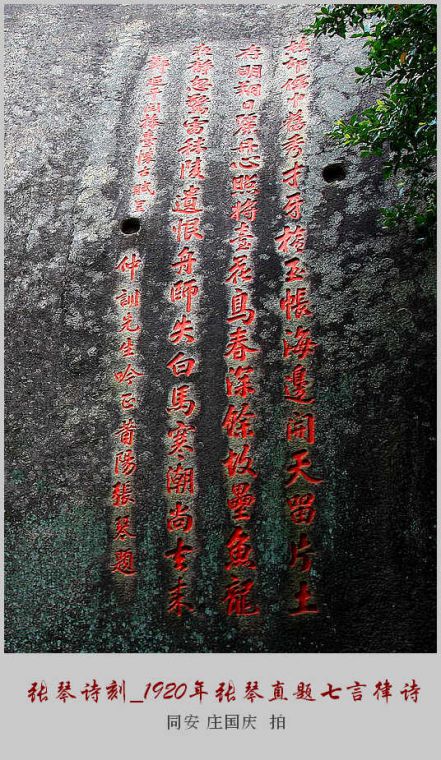 儒巾舊秀才牙旗玉帳海邊開天留片土
存明朔日麗丹心照將臺花鳥春深餘故壘魚龍
夜靜忽驚雷秣陵遺恨舟師失白馬寒潮尚去來
鄭延平臺懷古賦呈
仲訓先生吟正首陽張琴題
张琴诗刻_1920年张琴真题七言律诗
同安 庄国庆 拍